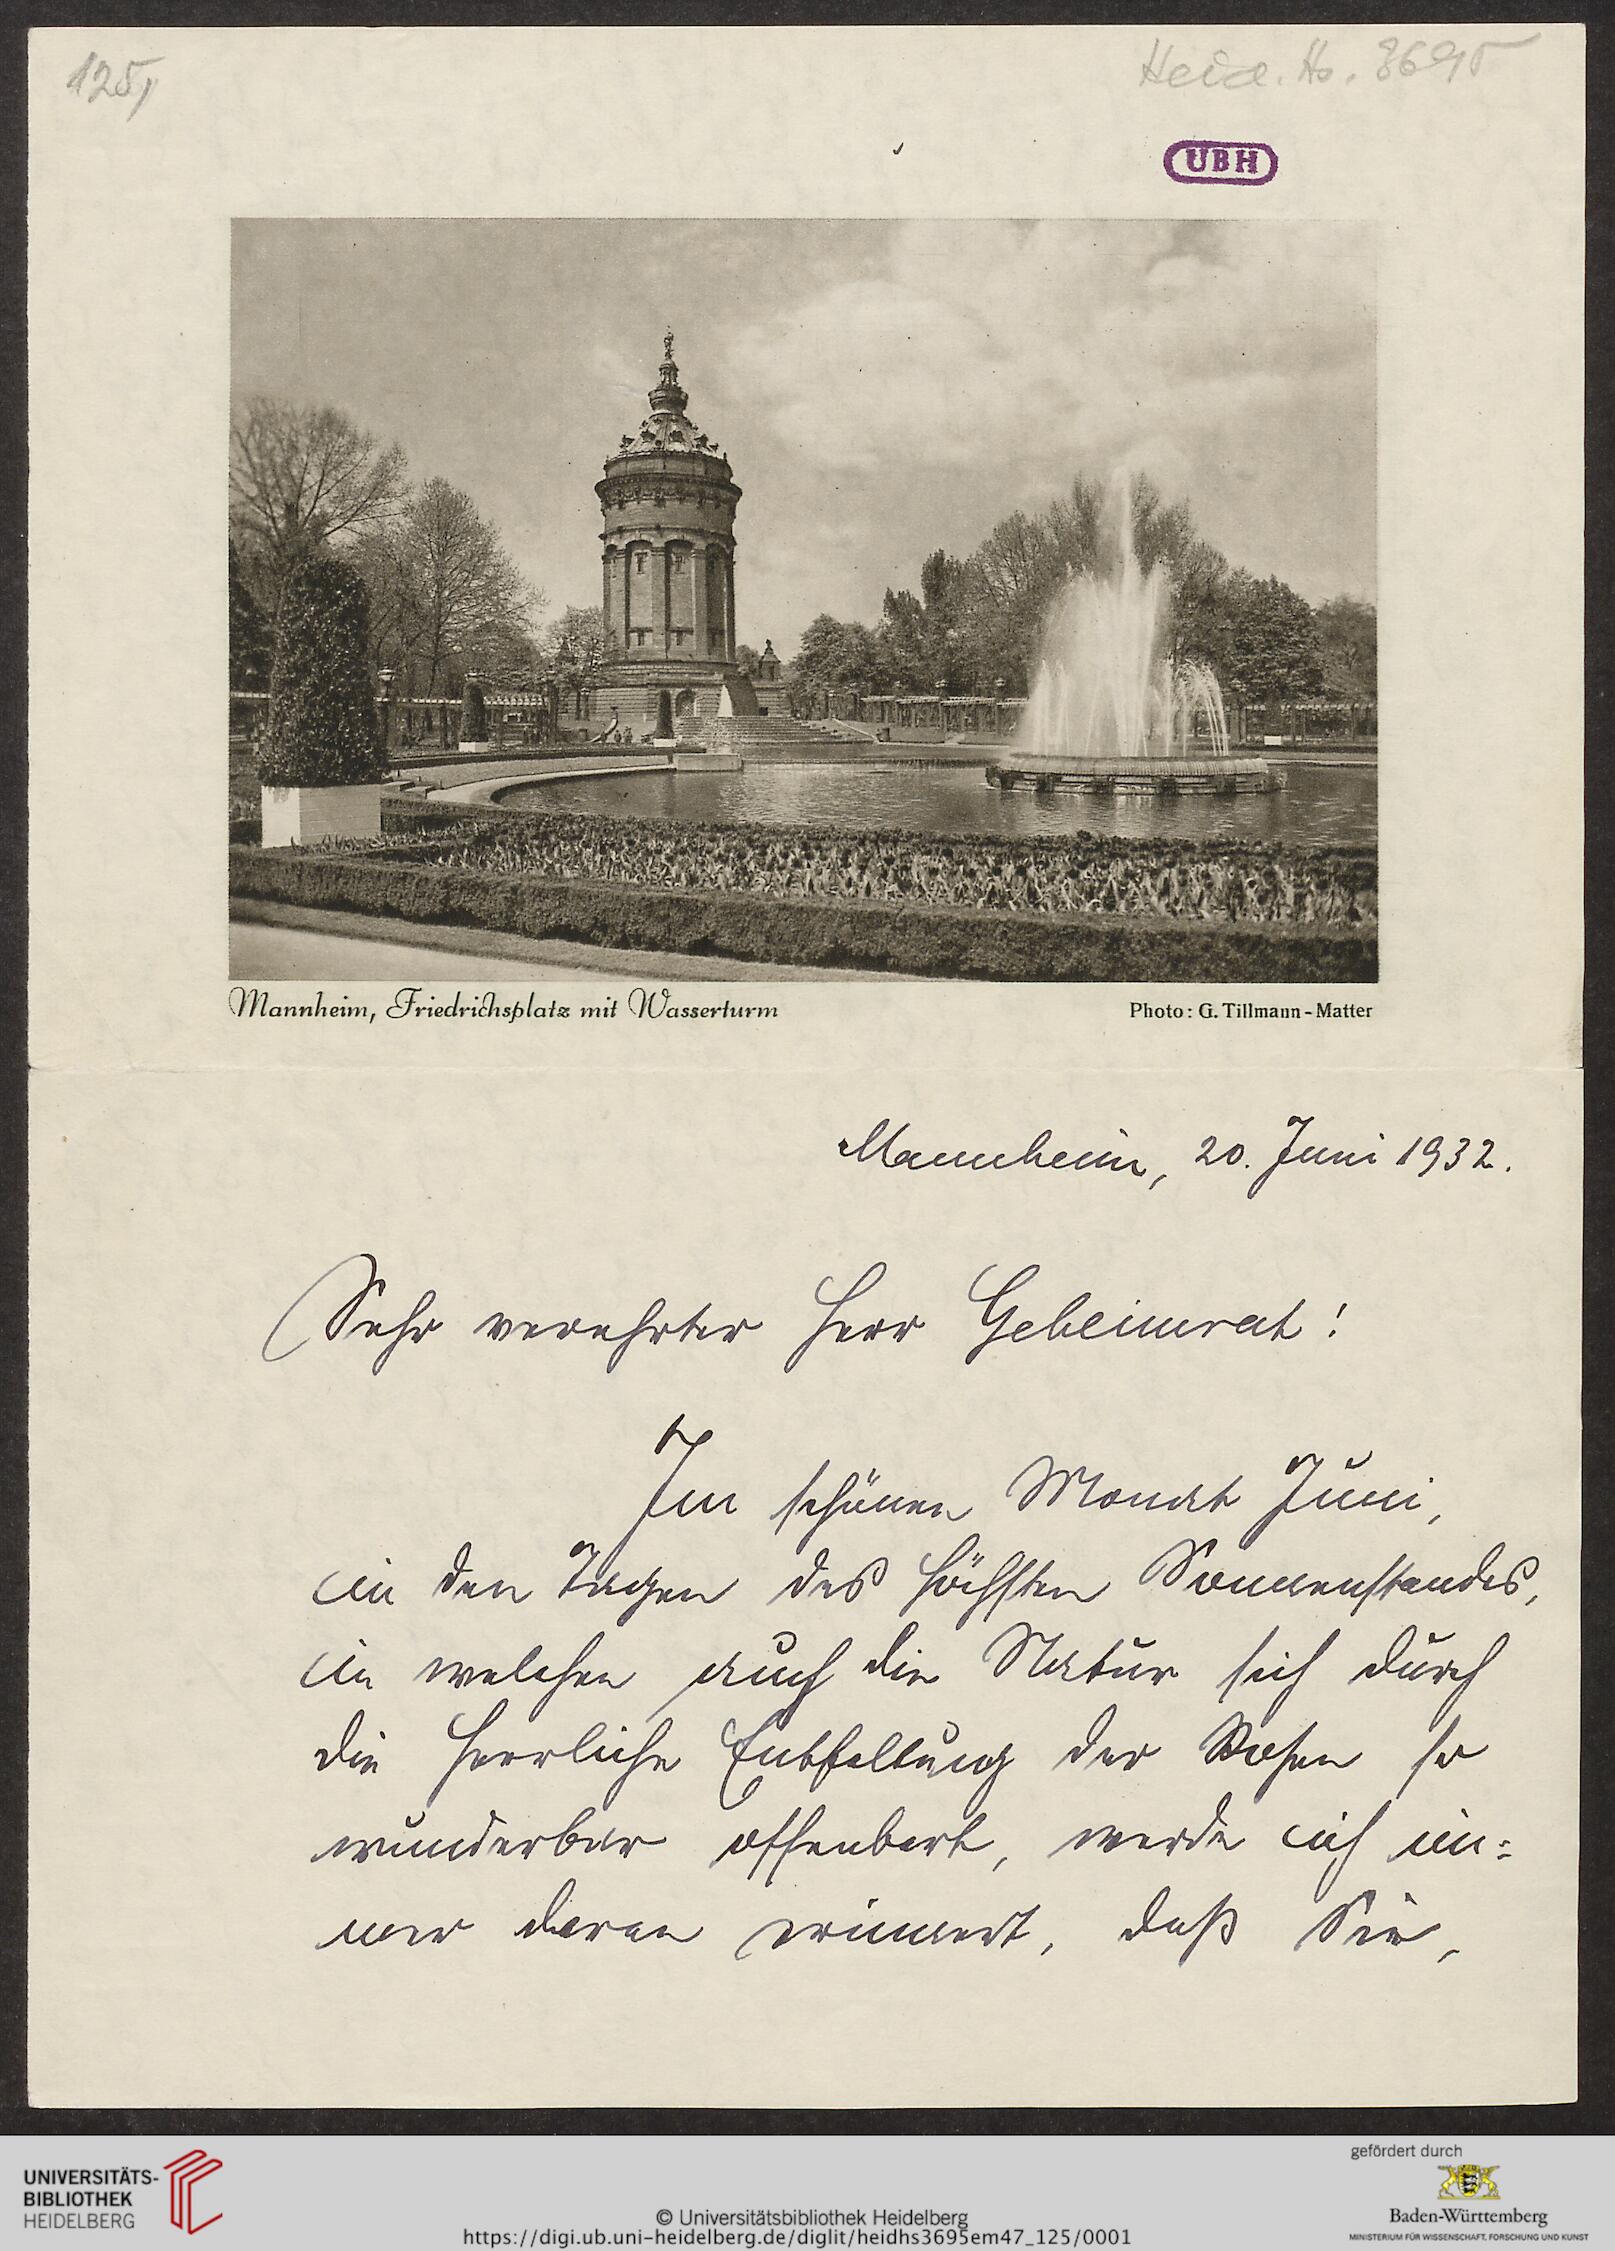 125,
Heid. Hs. 3695
UBH
Mannheim, Friedrichsplatz mit Wasserturm
Photo: G. Tillmann-Matter
Mannheim, 20. Juni 1932.
Sehr verehrter Herr Geheimrat!
Im schönen Monat Juni,
in den Tagen des höchsten Sonnenstandes,
in welchen auch die Natur sich durch
die herrliche Entfaltung der Rosen so
wunderbar offenbart, werde ich im=
mer daran erinnert, daß Sie,
UNIVERSITÄTS-
BIBLIOTHEK
HEIDELBERG
© Universitätsbibliothek Heidelberg
https://digi.ub.uni-heidelberg.de/diglit/heidhs3695em47_125/0001
gefördert durch
Baden-Württemberg
MINISTERIUM FÜR WISSENSCHAFT, FORSCHUNG UND KUNST